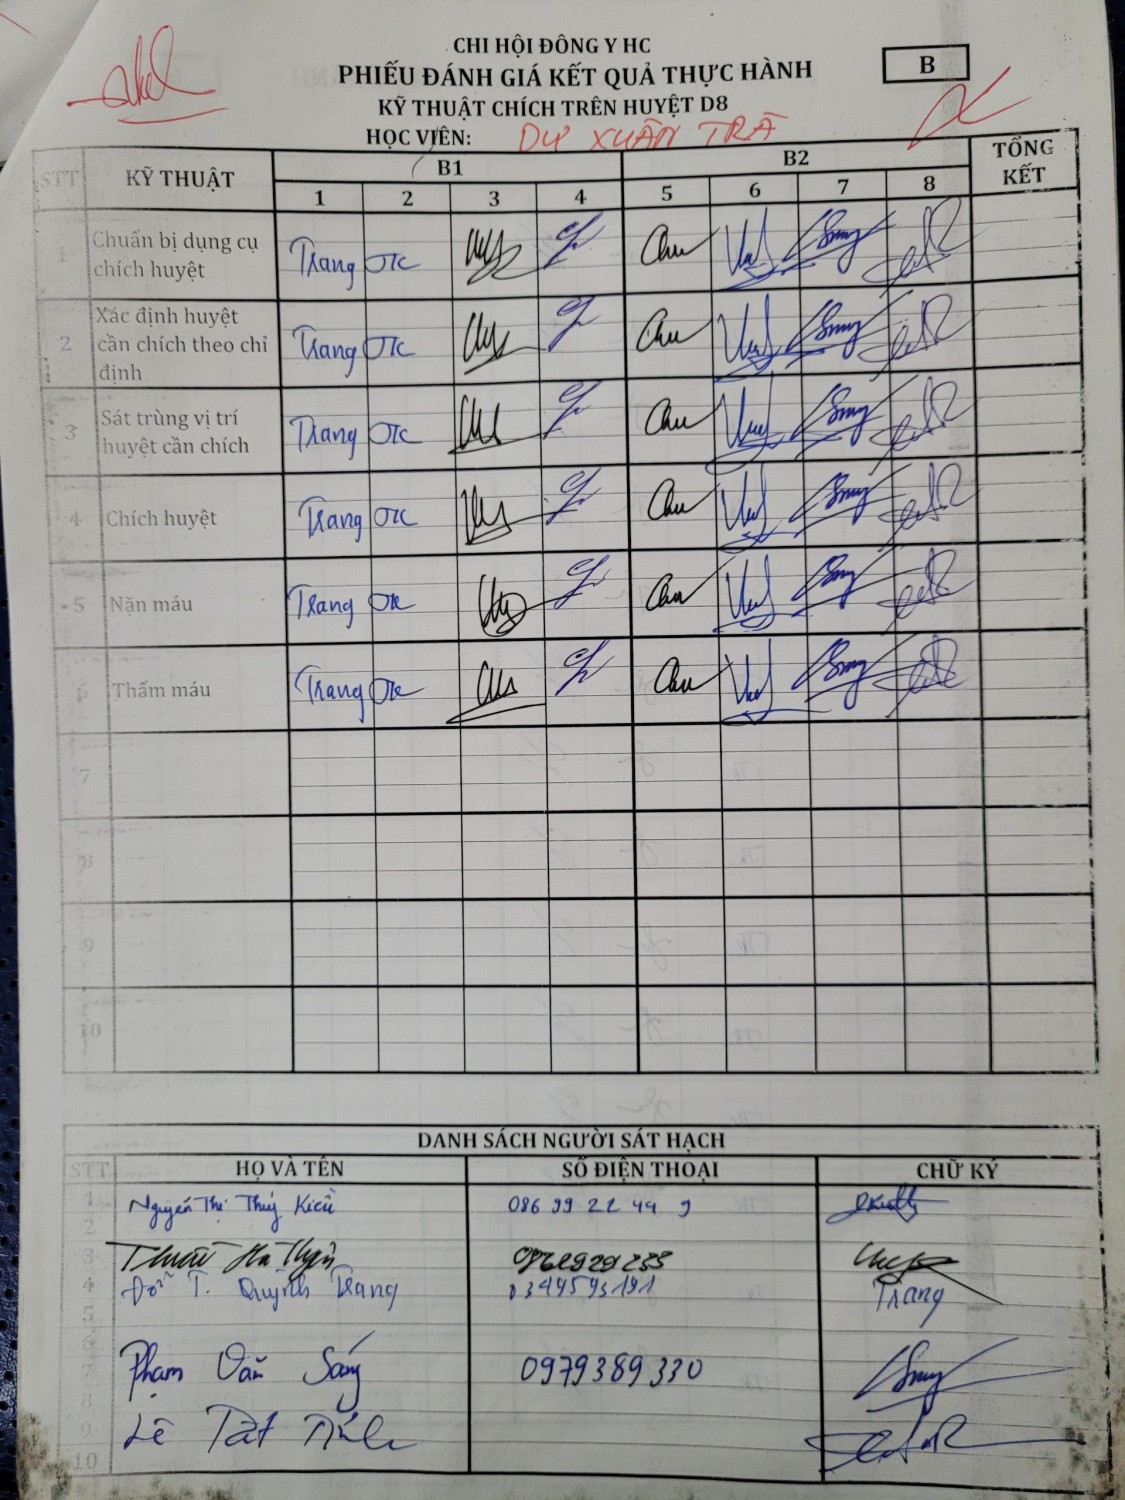 CHI HỘI ĐÔNG Y HC
PHIẾU ĐÁNH GIÁ KẾT QUẢ THỰC HÀNH
B
KỸ THUẬT CHÍCH TRÊN HUYỆT D8
HỌC VIÊN: DƯ XUÂN TRÃ
STT KỸ THUẬT B1 B2 TỔNG KẾT
1 2 3 4 5 6 7 8
1 Chuẩn bị dụng cụ chích huyệt Trang OK
2 Xác định huyệt cần chích theo chỉ định Trang OK
3 Sát trùng vị trí huyệt cần chích Trang OK
4 Chích huyệt Trang OK
5 Nặn máu Trang OK
6 Thấm máu Trang OK
7
8
9
10
DANH SÁCH NGƯỜI SÁT HẠCH
STT HỌ VÀ TÊN SỐ ĐIỆN THOẠI CHỮ KÝ
1 Nguyễn Thị Thúy Kiều 086 99 22 44 9
2
3
4 T. Quỳnh Trang Trang
5
6
7 Phạm Văn Sáng 0979389330
8
9 Lê Tất
10